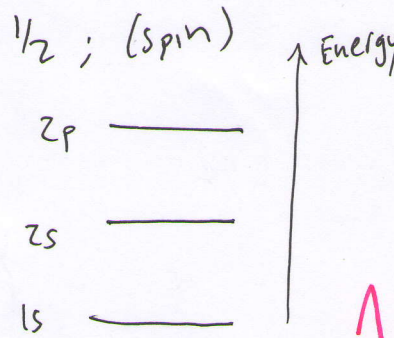 1/2 ; (spin)
Energy
2p
2s
1s